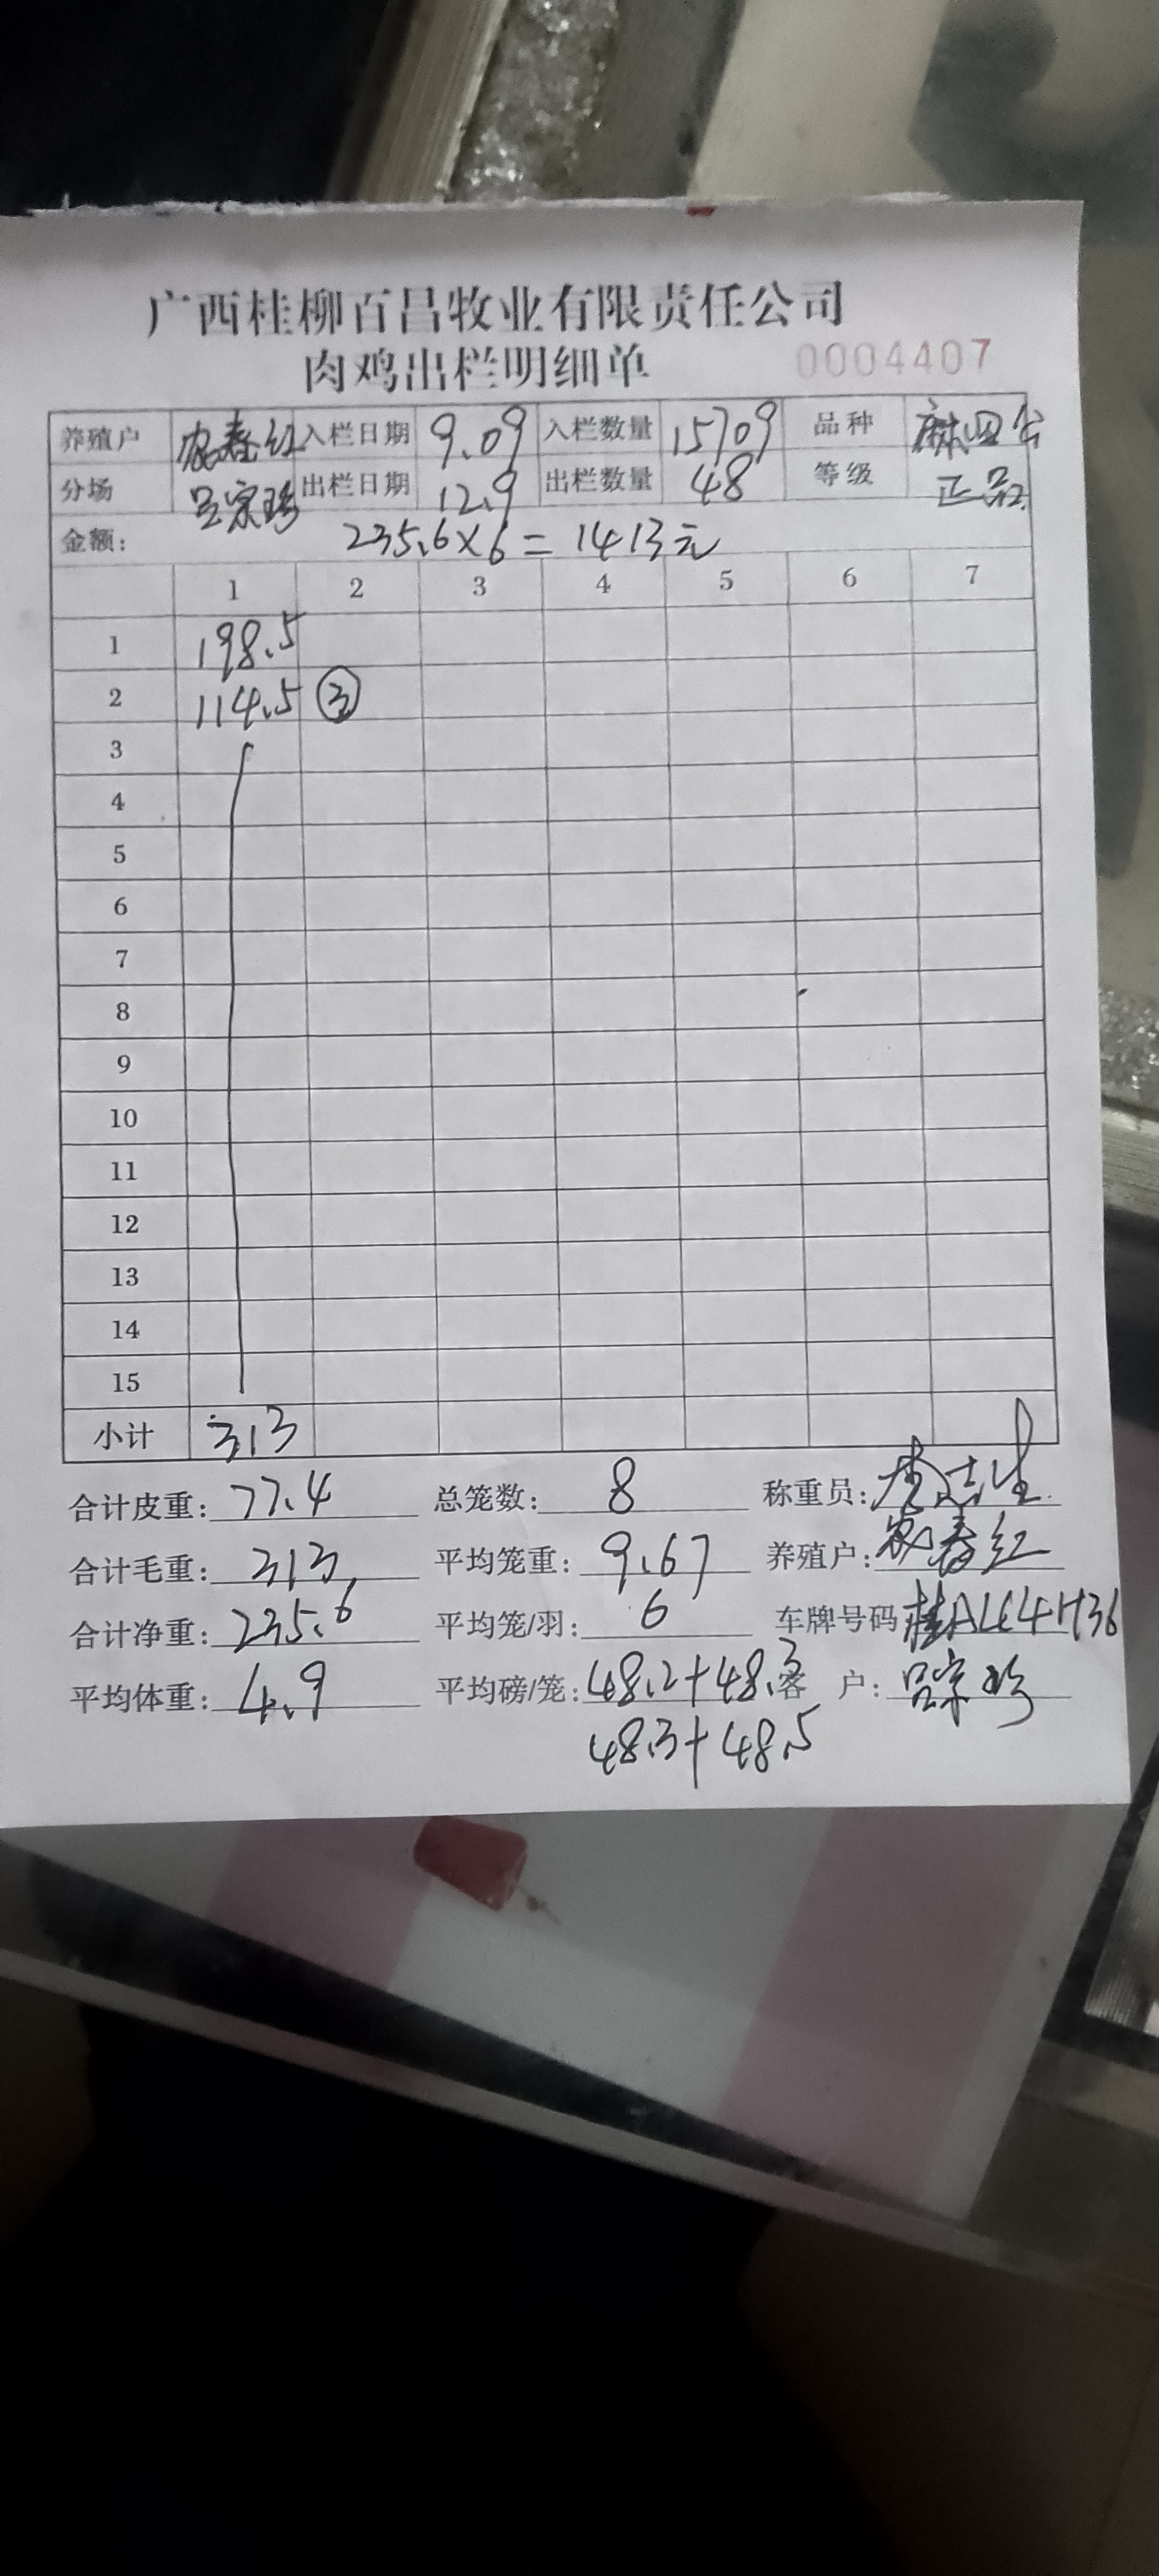 广西桂柳百昌牧业有限责任公司
肉鸡出栏明细单 0004407
养殖户 农春红 入栏日期 9.09 入栏数量 15709 品种 麻四公
分场 吕宗珍 出栏日期 12.9 出栏数量 48 等级 正品
金额: 235.6×6=1413元
1 2 3 4 5 6 7
1 198.5
2 114.5 ③
3
4
5
6
7
8
9
10
11
12
13
14
15
小计 313
合计皮重: 77.4 总笼数: 8 称重员: 李志生
合计毛重: 313 平均笼重: 9.67 养殖户: 农春红
合计净重: 235.6 平均笼/羽: 6 车牌号码
平均体重: 4.9 平均磅/笼: 48.2+48.3 客户: 吕宗珍
48.3+48.5